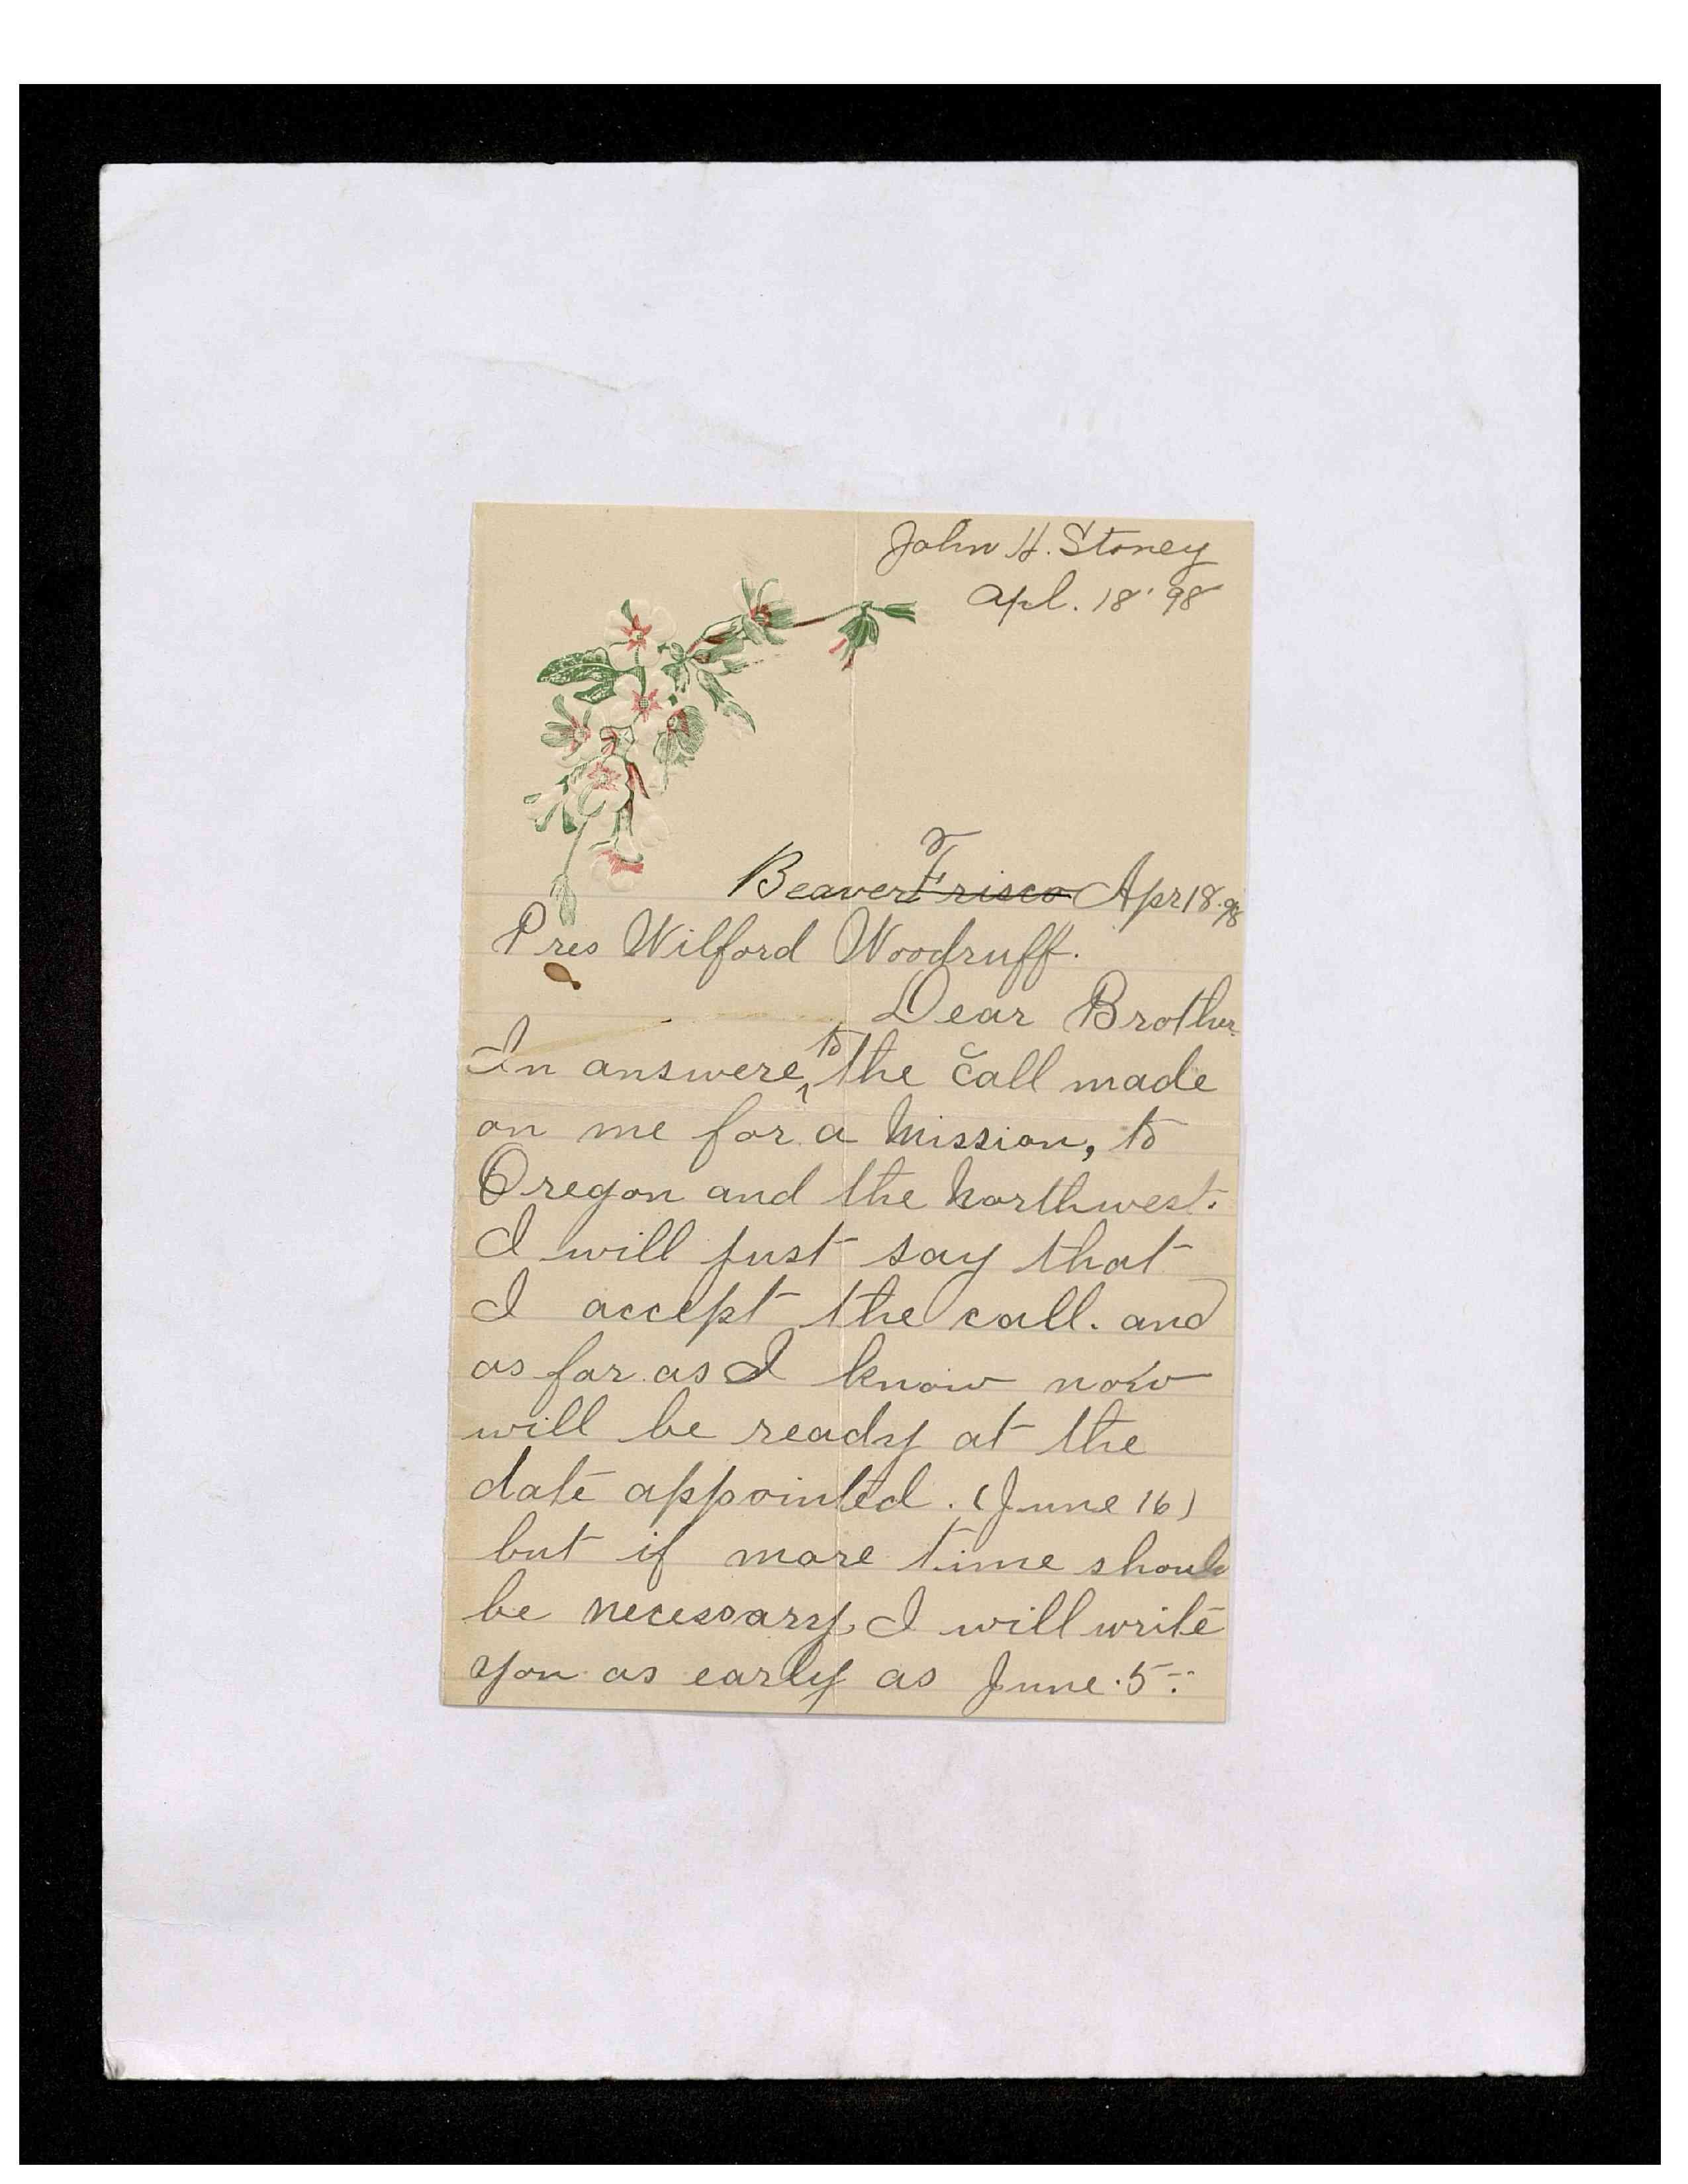 John H. Stoney
Apl. 18' 98
Beaver Frisco Apr 18. 98
Pres Wilford Woodruff.
Dear Brother
In answere to the call made
on me for a Mission, to
Oregon and the Northwest.
I will just say that
I accept the call. and
as far as I know now
will be ready at the
date appointed. (June 16)
but if more time should
be necessary, I will write
you as early as June 5-